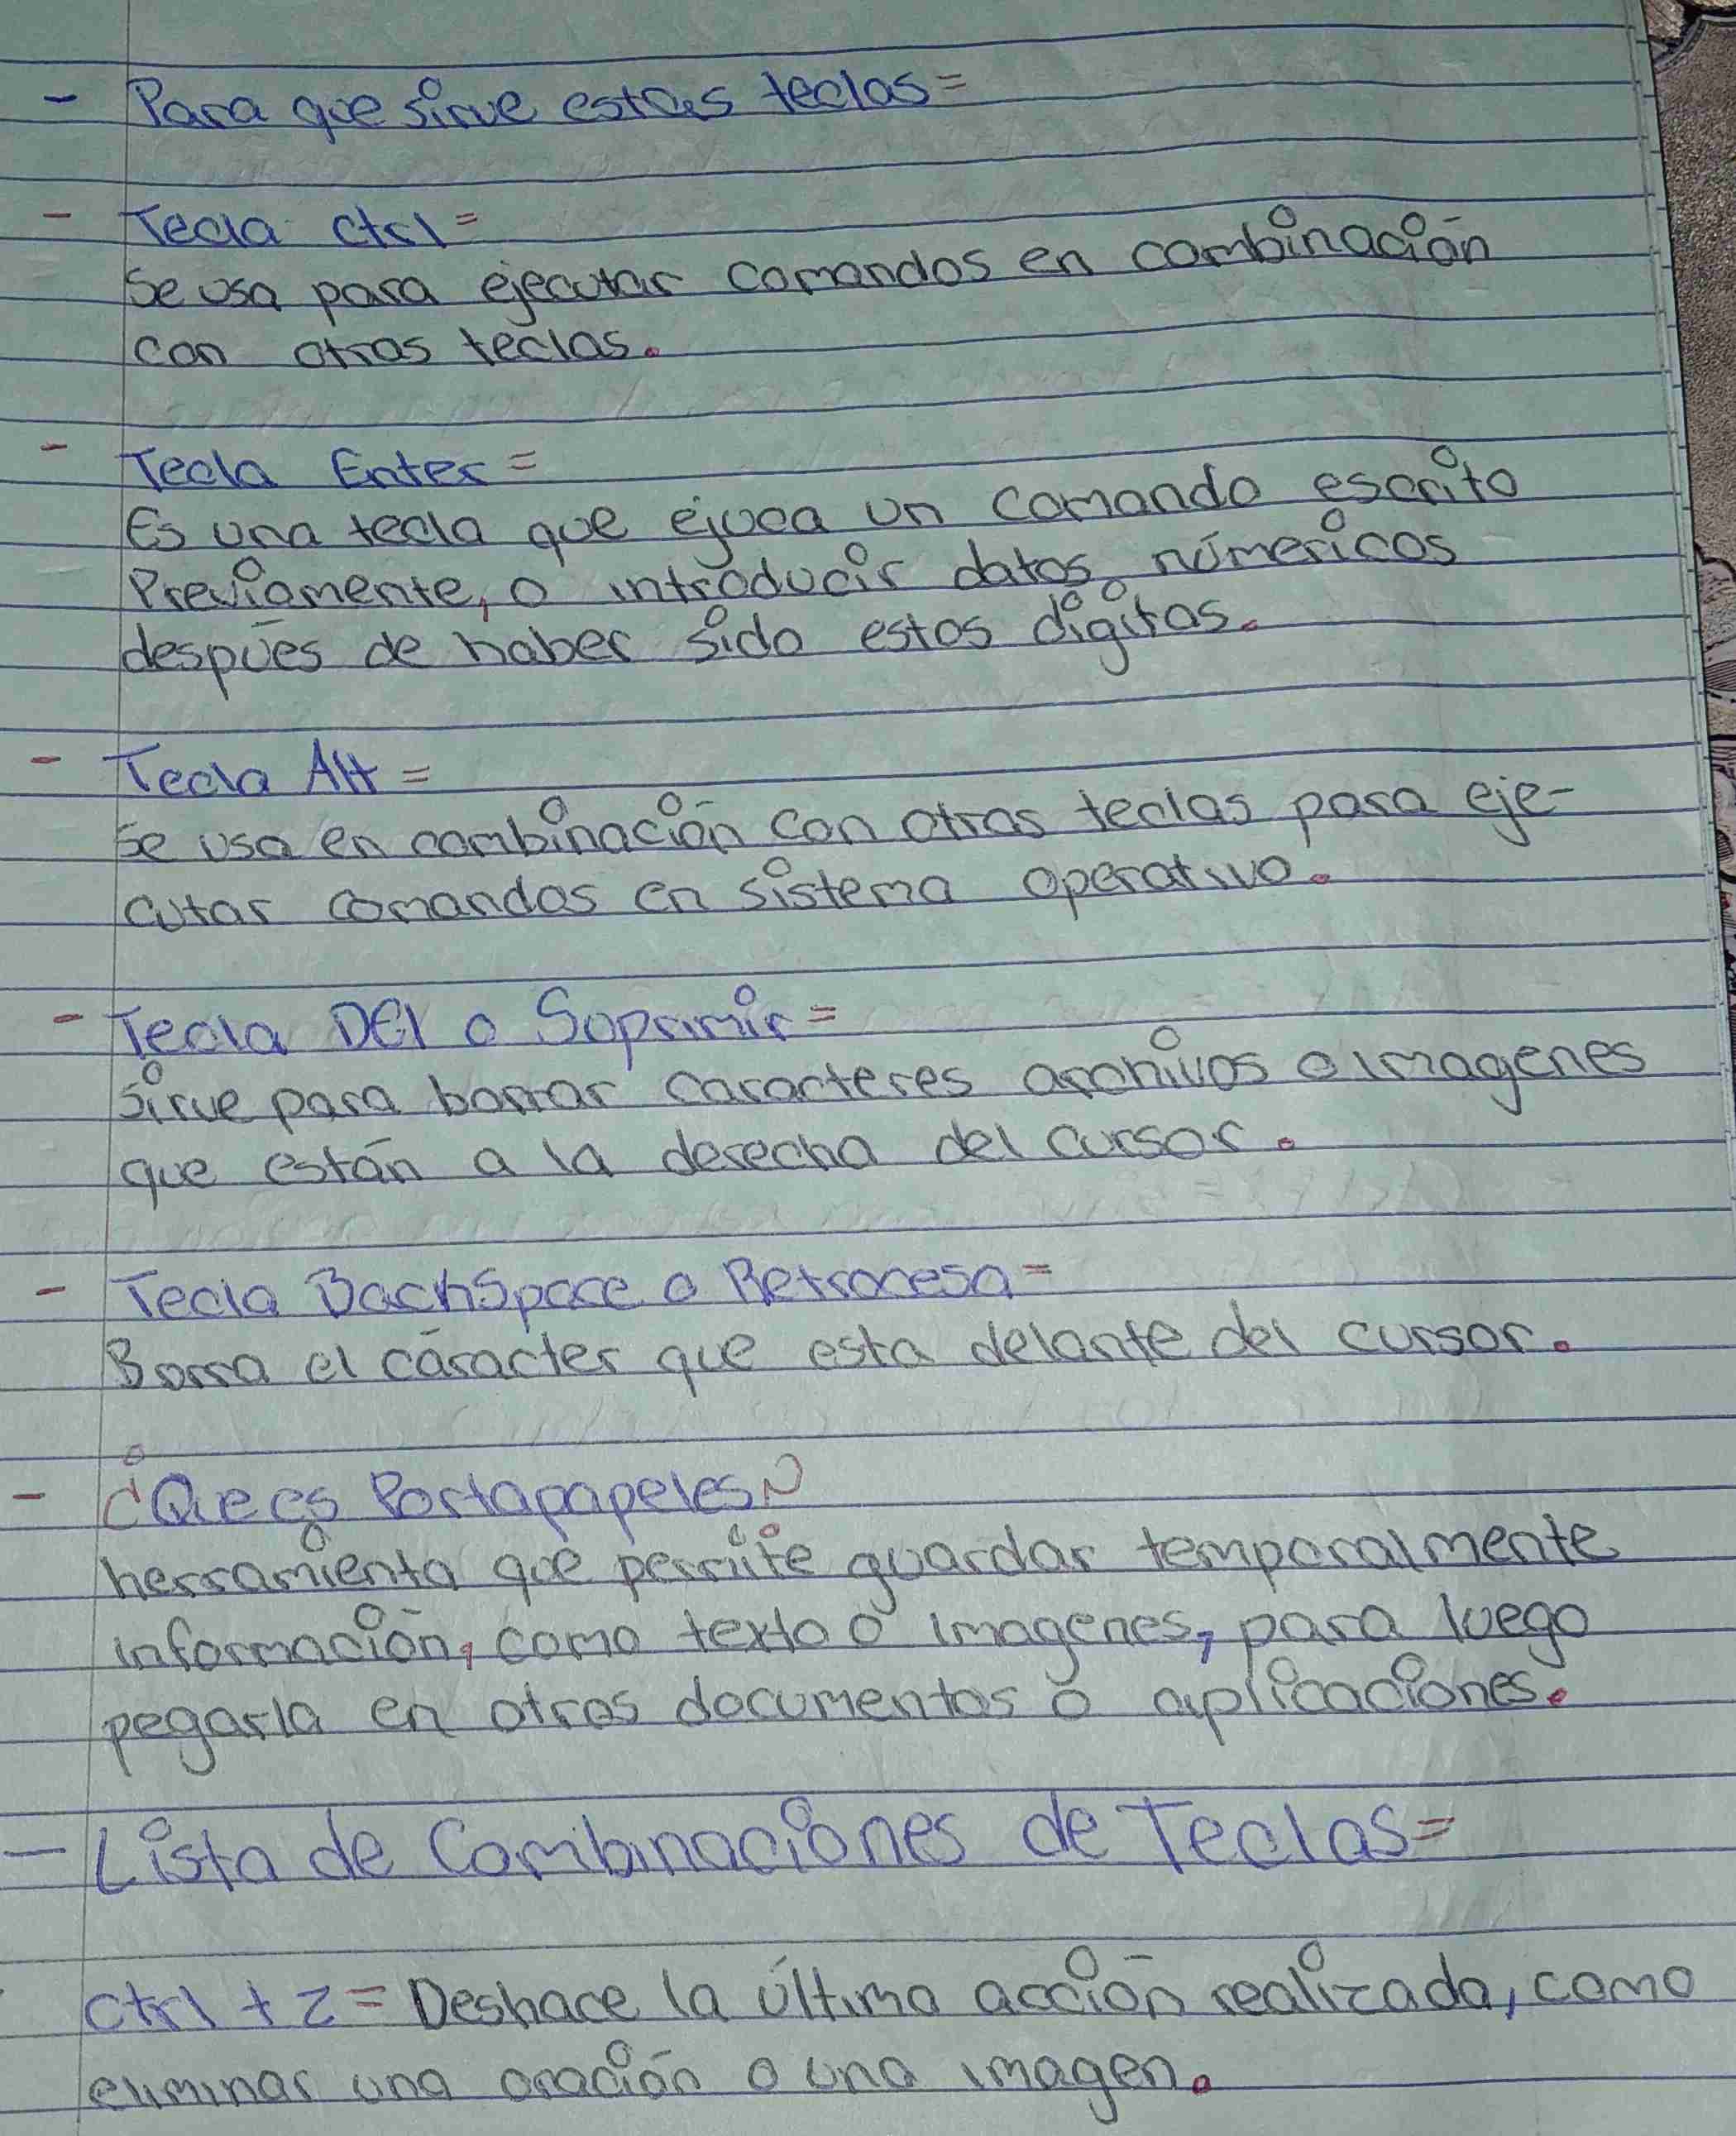 - Para que sirve estas teclas=
- Tecla ctrl=
Se usa para ejecutar comandos en combinación
con otras teclas.
- Tecla Enter=
Es una tecla que ejuca un comando escrito
Previamente, o introducir datos númericos
despúes de haber sido estos digitos.
- Tecla Alt=
Se usa en combinación con otras teclas para eje-
cutar comandos en sistema operativo.
- Tecla DEl o Soprimir=
Sirve para borrar caracteres archivos o imagenes
que están a la derecha del cursor.
- Tecla BachSpace o Retrocesa=
Borra el cáracter que esta delante del cursor.
- ¿Que es Portapapeles?
herramienta que permite guardar temporalmente
información, como texto o imagenes, para luego
pegarla en otros documentos o aplicaciones.
- Lista de Combinaciones de Teclas=
ctrl + z = Deshace la última acción realizada, como
eliminar una oración o una imagen.